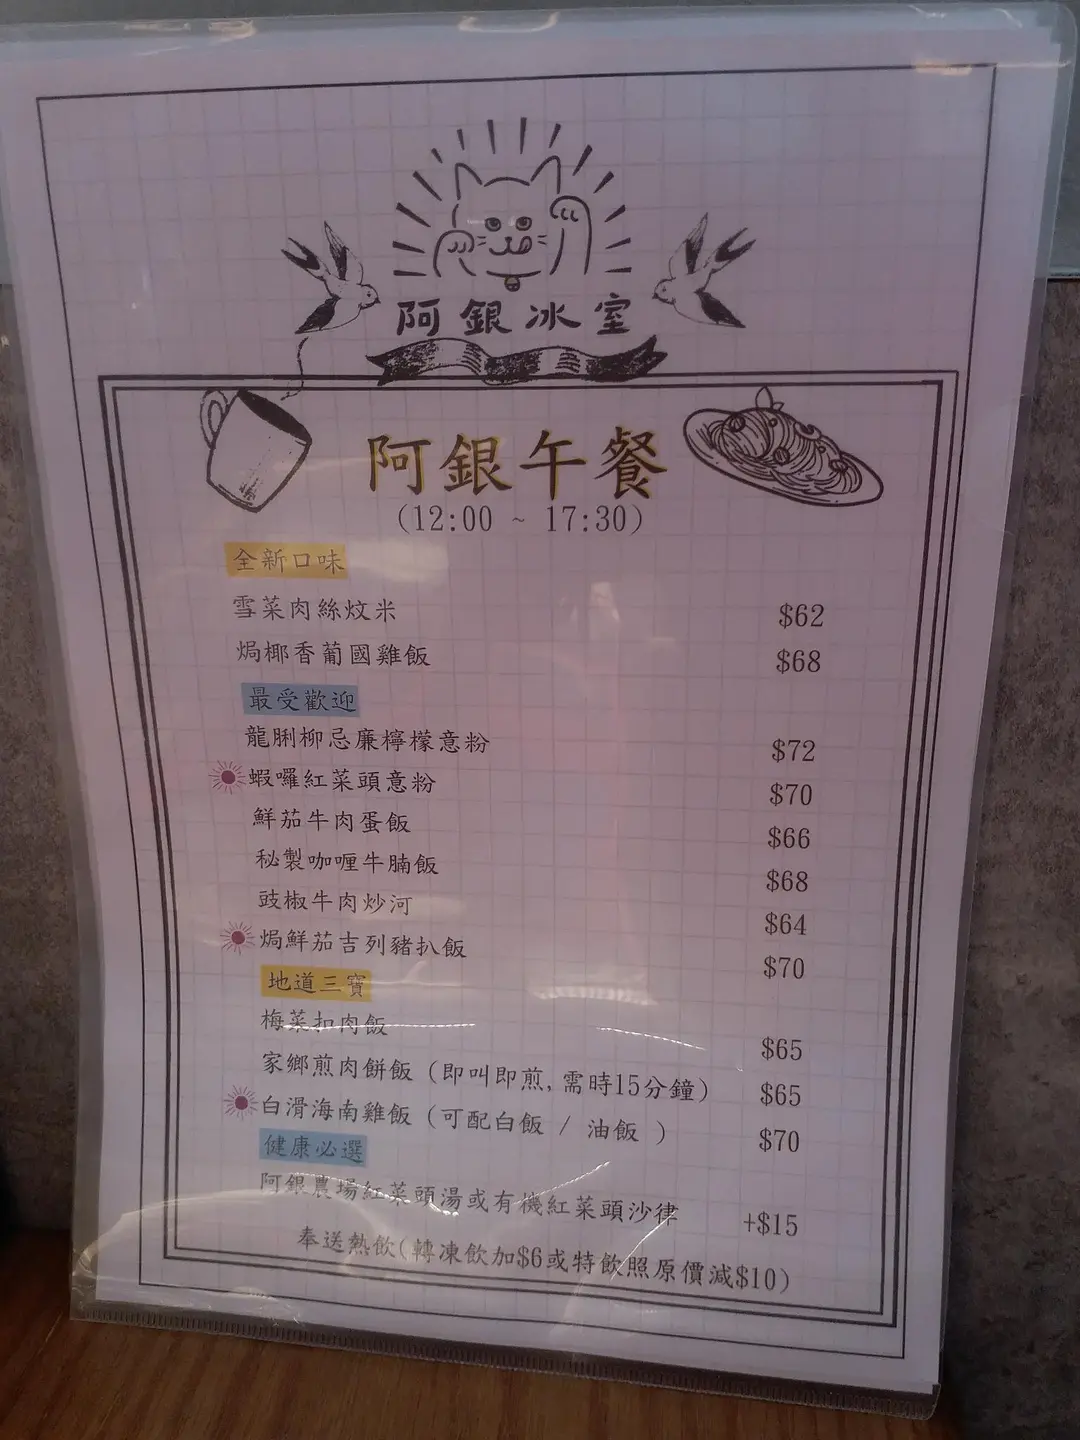 阿銀冰室
阿銀午餐
(12:00 ~ 17:30)
全新口味
雪菜肉絲炆米 $62
焗椰香葡國雞飯 $68
最受歡迎
龍脷柳忌廉檸檬意粉 $72
蝦囉紅菜頭意粉 $70
鮮茄牛肉蛋飯 $66
秘製咖喱牛腩飯 $68
豉椒牛肉炒河 $64
焗鮮茄吉列豬扒飯 $70
地道三寶
梅菜扣肉飯 $65
家鄉煎肉餅飯 (即叫即煎,需時15分鐘) $65
白滑海南雞飯 (可配白飯 / 油飯 ) $70
健康必選
阿銀農場紅菜頭湯或有機紅菜頭沙律 +$15
奉送熱飲(轉凍飲加$6或特飲照原價減$10)